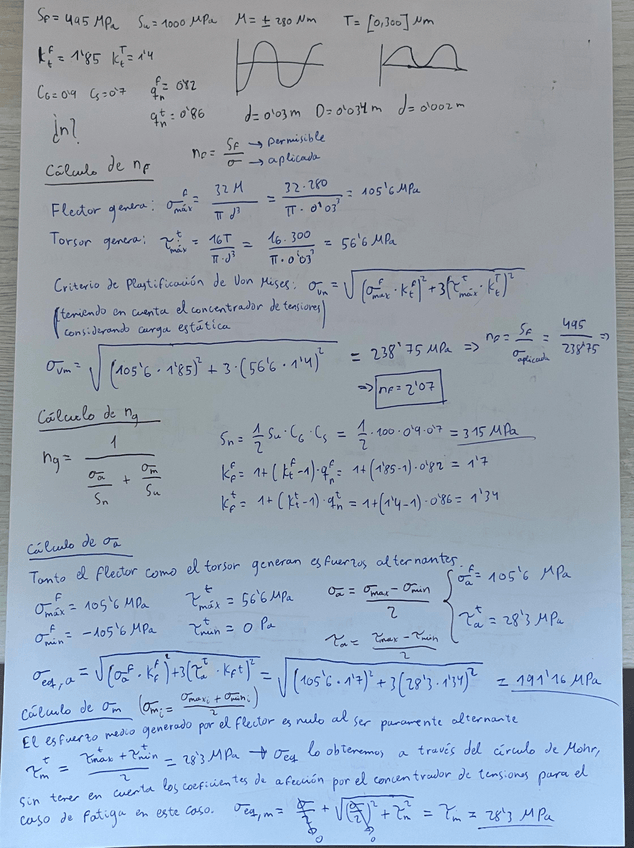 S_F = 495 MPa   S_u = 1000 MPa   M = ± 280 Nm   T = [0,300] Nm
k_t^F = 1'85   k_t^T = 1'4
C_G = 0'9   C_S = 0'7   q_n^F = 0'82
q_n^t = 0'86   d = 0'03 m   D = 0'034 m   d = 0'002 m
¿n?
Cálculo de n_F   n_F = S_F / σ → permisible → aplicada
Flector genera: σ_máx^F = 32 M / π d³ = 32·280 / π·0'03³ = 105'6 MPa
Torsor genera: τ_máx^t = 16T / π·d³ = 16·300 / π·0'03³ = 56'6 MPa
Criterio de Plastificación de Von Mises: σ_vm = √((σ_max^F · k_t^F)² + 3(τ_máx^t · k_t^T)²)
(teniendo en cuenta el concentrador de tensiones
considerando carga estática)
σ_vm = √((105'6 · 1'85)² + 3·(56'6 · 1'4)²) = 238'75 MPa => n_F = S_F / σ_aplicada = 495 / 238'75 =>
=> n_F = 2'07
Cálculo de n_g
n_g = 1 / (σ_a / S_n + σ_m / S_u)
S_n = 1/2 S_u · C_G · C_S = 1/2 · 100 · 0'9 · 0'7 = 315 MPa
k_F^F = 1 + (k_t^F - 1) · q_n^F = 1 + (1'85 - 1) · 0'82 = 1'7
k_F^t = 1 + (k_t^t - 1) · q_n^t = 1 + (1'4 - 1) · 0'86 = 1'34
Cálculo de σ_a
Tanto el flector como el torsor generan esfuerzos alternantes.
σ_máx^F = 105'6 MPa   τ_máx^t = 56'6 MPa   σ_a = (σ_max - σ_min) / 2   { σ_a^F = 105'6 MPa
σ_mín^F = -105'6 MPa   τ_mín^t = 0 Pa   τ_a = (τ_max - τ_mín) / 2   τ_a^t = 28'3 MPa
σ_eq,a = √((σ_a^F · k_F^F)² + 3(τ_a^t · k_F^t)²) = √((105'6 · 1'7)² + 3(28'3 · 1'34)²) = 191'16 MPa
Cálculo de σ_m (σ_mi = (σ_maxi + σ_mini) / 2)
El esfuerzo medio generado por el flector es nulo al ser puramente alternante
τ_m^t = (τ_máx^t + τ_mín^t) / 2 = 28'3 MPa → σ_eq lo obtenemos a través del círculo de Mohr,
sin tener en cuenta los coeficientes de afección por el concentrador de tensiones para el
caso de fatiga en este caso. σ_eq,m = σ/2 + √((σ/2)² + τ_n²) = τ_m = 28'3 MPa
0   0